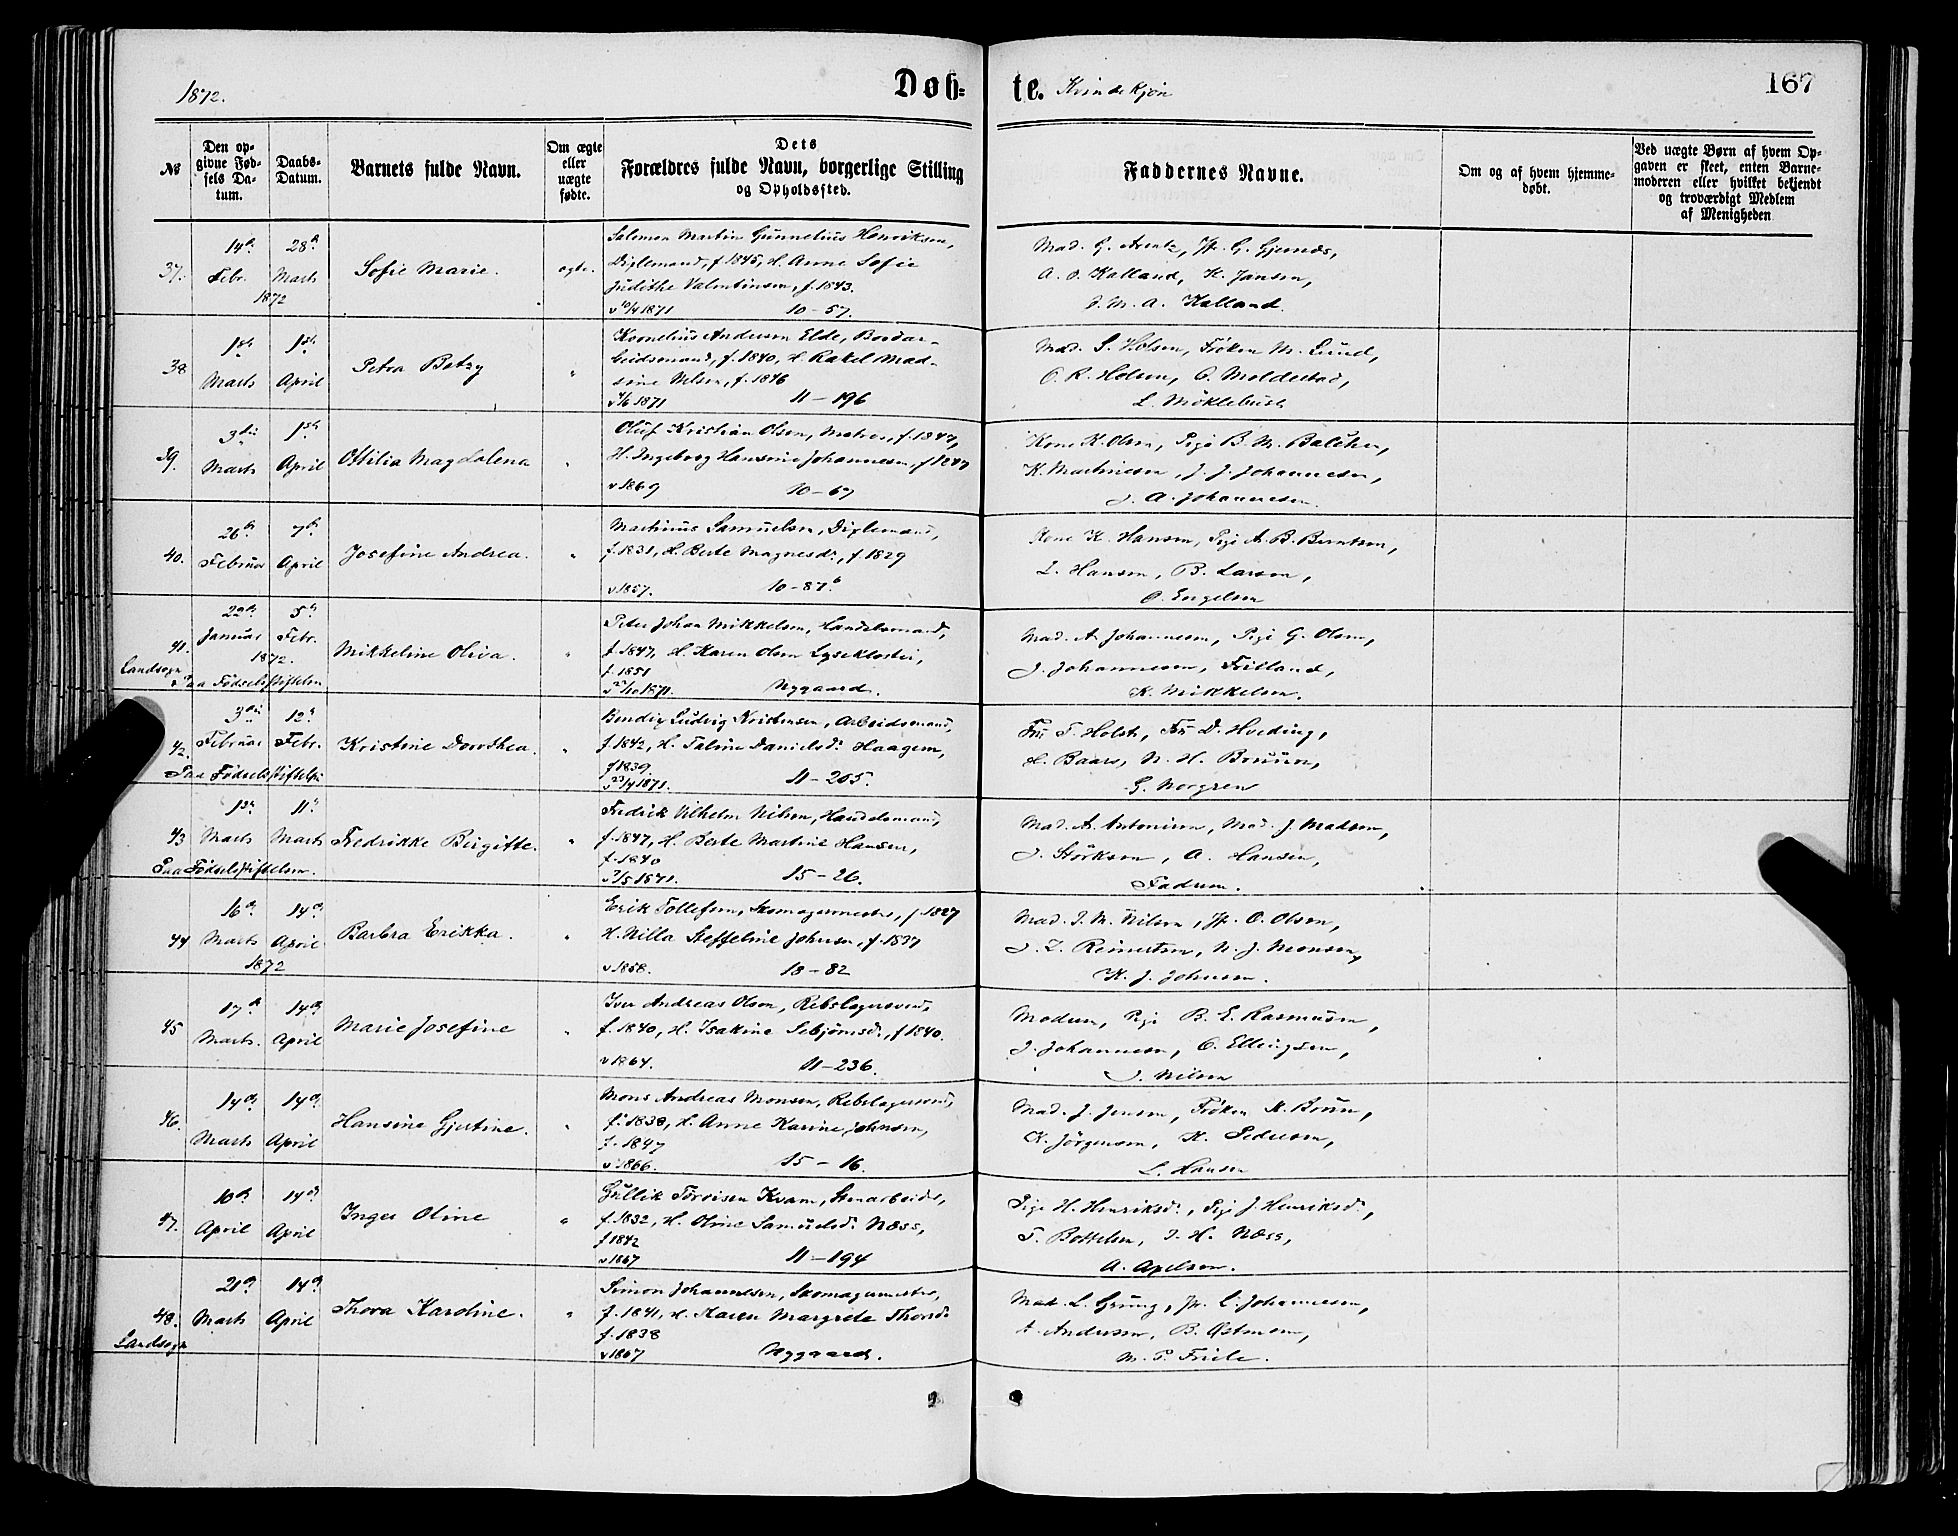 1872.
Døb-
te. Kvindekjøn
167
No
Den op-
givne Fød-
sels Da-
tum.
Daabs-
Datum.
Barnets fulde Navn.
Om ægte
eller
uægte
fødte.
Dets
Forældres fulde Navn, borgerlige Stilling
og Opholdssted.
Faddernes Navne.
Om og af hvem hjemme-
døbt.
Ved uægte Børn af hvem Op-
gaven er skeet, enten Barne-
moderen eller hvilket bekjendt
og troværdigt Medlem
af Menigheden
37.
14de Febr.
28de Marts
1872
Sofie Marie.
ægte.
Salomon Martin Gunnelius Henriksen,
Dixlemand, f. 1845, H. Anne Sofie
Judithe Valentinsen, f. 1843.
v 10/4 1871 10-57.
Mad. G. Arentz, Jfr. G. Gjernæs,
A. O. Kalland, H. Jansen,
J. M. A. Kalland.
38
1ste Marts
1ste April
Petra Betzy
"
Kornelius Andersen Elde, Bordar-
beidsmand, f. 1840, H. Rakel Mad-
sine Nilsen, f. 1846
v 4/6 1871 11-196
Mad. S. Holsen, Frøken M. Lund,
O. R. Holsen, O. Moldestad,
L. Møklebust
39.
3die Marts
1ste April
Ottilia Magdalena
"
Oluf Kristian Olsen, Matros, f. 1847,
H. Ingeborg Hansine Johannesen, f 1847
v 1869 10-67
Kone K. Olsen, Pige B. M. Balchen,
K. Martinesen, J. J. Johannesen,
J. A. Johannesen
40.
26de Februar
7de April
Josefine Andrea.
"
Martinus Samuelsen, Dixlemand,
f. 1831, H. Berte Magnesdr., f 1829
v 1857. 10-87b
Kone K. Hansen, Pige A. B. Berntsen,
L. Hansen, B. Larsen,
O. Engelsen
41.
Landsogn
22de Januar
5te Febr.
1872.
Paa Fødselsstiftelsen
Mikkeline Oliva.
"
Peter Johan Mikkelsen, Handelsmand,
f. 1847, H. Karen Olsen Lysekloster,
f. 1851
v 22/10 1871. Nygaard.
Mad. A. Johannesen, Pige G. Olsen,
J. Johannesen, Frilland,
K. Mikkelsen.
42.
3die Februar
12te Febr.
Paa Fødselsstiftelsen
Kristine Dorothea.
"
Bendix Ludvig Kristensen, Arbeidsmand,
f. 1842, H. Taline Danielsdr. Haagem,
f 1839
v 23/4 1871. 11-205.
Fru T. Holst, Fru D. Hveding,
H. Baars, N. H. Bruun,
G. Norgren
43
1ste Marts
11te Marts
Paa Fødselsstiftelsen.
Fredrikke Birgitte.
"
Fredrik Vilhelm Nilsen, Handelsmand,
f. 1847, H. Berte Martine Hansen,
f. 1840
v 7/5 1871. 15-26.
Mad. A. Antonisen, Mad. J. Madsen,
J. Størksen, A. Hansen,
Faderen.
44
16de Marts
14de April
1872
Barbra Erikka.
"
Erik Tollefsen, Skomagermester, f 1827
H. Nilla Steffeline Johnsen, f. 1837
v 1858. 18-82
Mad. J. M. Nilsen, Jfr. O. Olsen,
J. L. Reinertsen, N. J. Monsen,
K. J. Johnsen.
45
17de Marts.
14de April
Marie Josefine
"
Iver Andreas Olsen, Rebslagersvend,
f. 1840, H. Isakine Sebjørnsd., f 1840.
v 1864. 11-236.
Moderen, Pige B. E. Rasmusen,
J. Johannesen, C. Ellingsen,
J. Nilsen
46.
14de Marts
14de April
Hansine Gjertine.
"
Mons Andreas Monsen, Rebslagersvend,
f. 1838, H. Anne Karine Johnsen,
f. 1847
v 1866. 15-16.
Mad. J. Jensen, Frøken K. Bruun,
K. Jørgensen, K. Pedersen,
L. Hansen
47.
10de April
14de April
Inger Oline
"
Gullik Torvisen Kvam, Stenarbeider,
f. 1832, H. Oline Samuelsdr. Næss,
f 1842
v 1867 11-194
Pige H. Henriksdr., Pige J. Henriksdr.,
T. Bottelsen, J. H. Næss,
A. Axelsen.
48.
Landsogn
21de Marts
14de April
Thora Karoline.
"
Simon Johannesen, Skomagermester,
f. 1841, H. Karen Margrete Thorsdr.
f. 1838
v 1867 Nygaard.
Mad. L. Grung, Jfr. C. Johannesen,
A. Andersen, B. Østmoen,
M. P. Friele.